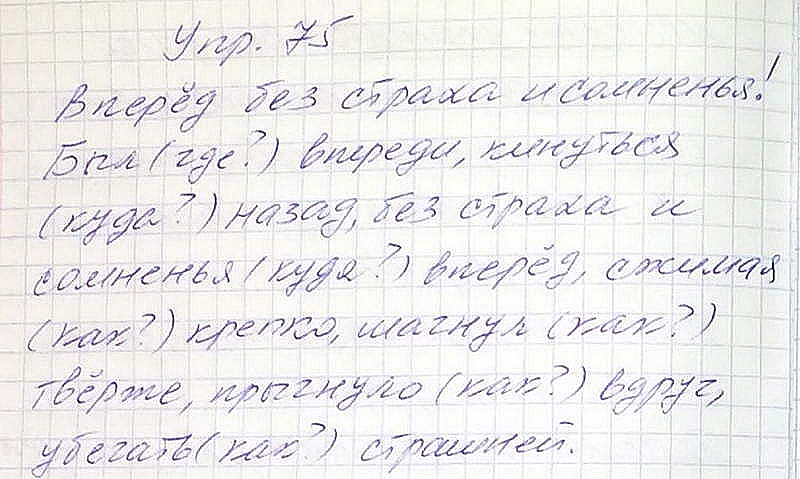 Упр. 75
Вперёд без страха и сомненья!
Был (где?) впереди, кинуться
(куда?) назад, без страха и
сомненья (куда?) вперёд, сжимая
(как?) крепко, шагнул (как?)
твёрже, прыгнуло (как?) вдруг,
убегать (как?) страшней.